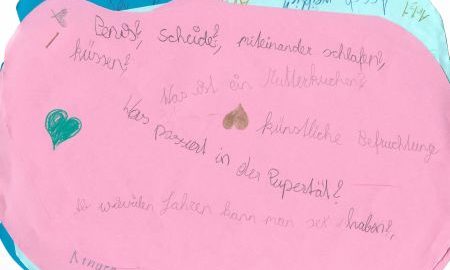 Penis?, Scheide?, miteinander schlafen?,
küssen?
Was ist ein Mutterkuchen?
künstliche Befruchtung
Was passiert in der Pupertät?
Jahren kann man sex haben?,